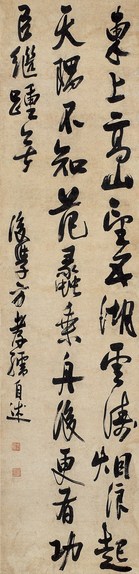 東上高山望五湖雪濤烟浪起
天隅不知范蠡乘舟後更有功
臣繼踵無
後學方孝孺自述